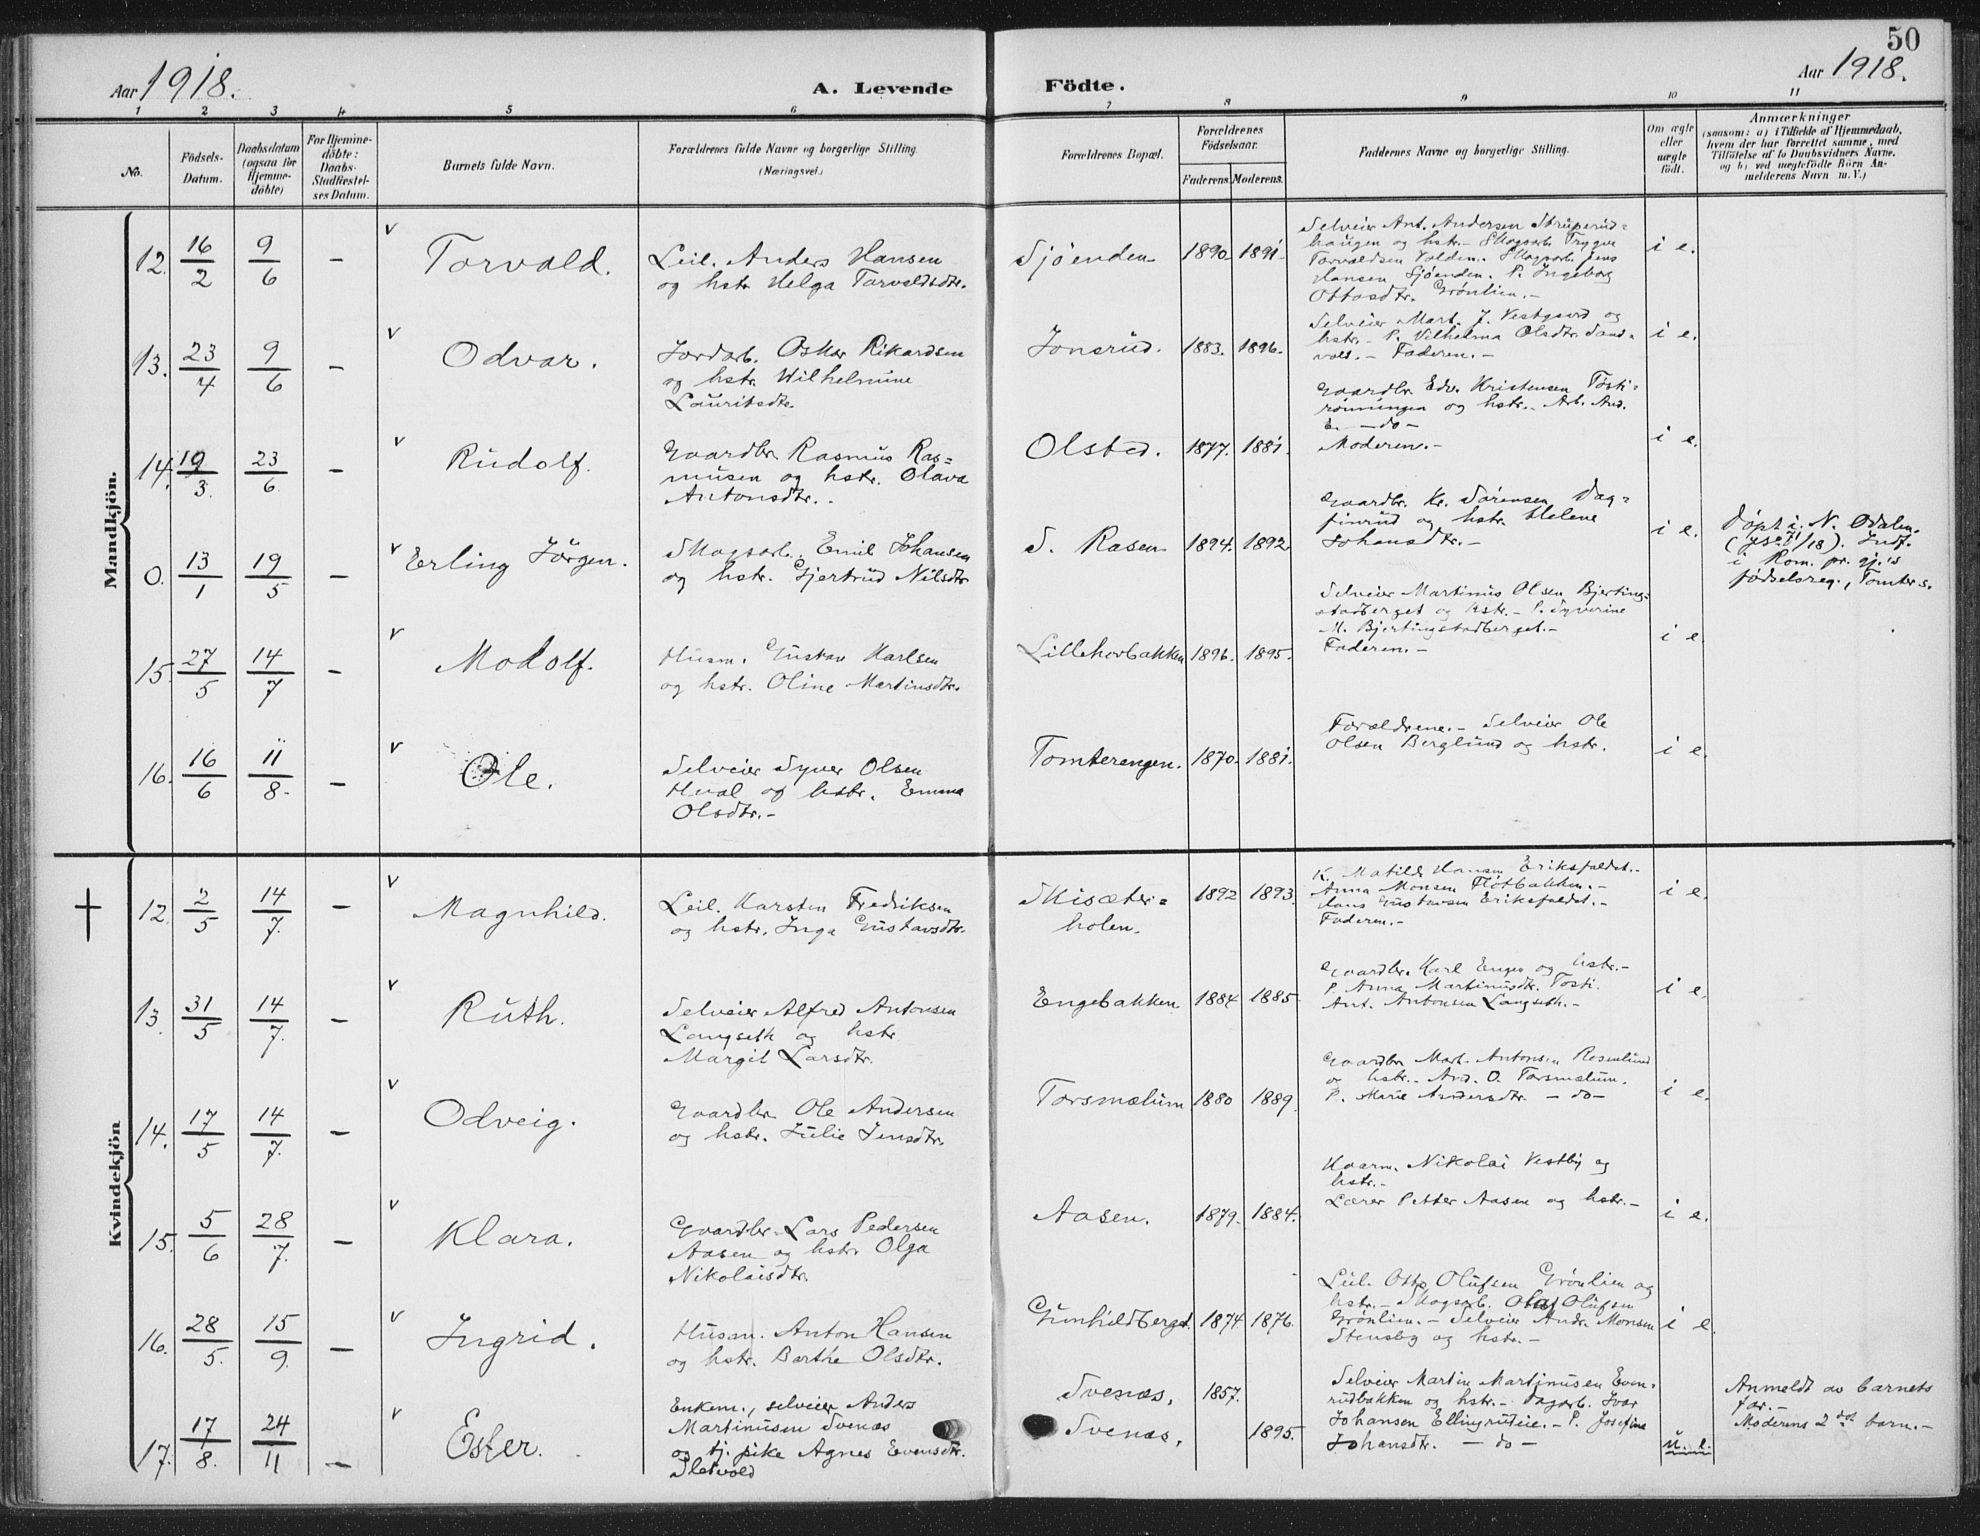 50
Aar 1918.
A. Levende
Födte.
Aar 1918.
1 2 3 4 5 6 7 8 9 10 11
No.
Födsels-
Datum.
Daabsdatum
(ogsaa for
Hjemme-
döbte)
For Hjemme-
döbte:
Daabs-
Stadfæstel-
ses Datum.
Barnets fulde Navn.
Forældrenes fulde Navne og borgerlige Stilling.
(Næringsvei.)
Forældrenes Bopæl.
Forældrenes
Födselsaar.
Faderens Moderens.
Faddernes Navne og borgerlige Stilling.
Om ægte
eller
uægte
födt.
Anmærkninger
(saasom: a) i Tilfælde af Hjemmedaab,
hvem der har forrettet samme, med
Tilföielse af to Daabsvidners Navne,
og b) ved uægtefödte Börn An-
melderens Navn m. V.)
Mandkjön.
12. 16/2 9/6 – v Torvald.
Leil. Anders Hansen
og hstr. Helga Torvaldsdtr.
Sjøenden 1890 1891
Selveier Ant. Andersen Struperud=
haugen og hstr.- Skogsarb. Trygve
Torvaldsen Volden.- Skogsarb. Jens
Hansen Sjøenden. P. Ingeborg
Ottosdtr. Grønlien.-
i e.
13. 23/4 9/6 – v Odvar.
Jordarb. Oskar Rikardsen
og hstr. Wilhelmine
Lauritsdtr.
Jonsrud. 1883. 1896.
Selveier Mart. J. Vestgard og
hstr.- P. Vilhelma Olsdtr. Sand=
vold.- Faderen.-
i e.
14. 19/3. 23/6 – v Rudolf.
Gaardbr. Rasmus Ras=
musen og hstr. Olava
Antonsdtr.-
Olsted. 1877. 1881.
Gaardbr. Edv. Kristensen Tosti=
rønningen og hstr.- Arb. And.
E. -do-
Moderen.-
i e.
0. 13/1 19/5 – v Erling Jörgen.
Skogsarb. Emil Johansen
og hstr. Gjertrud Nilsdtr
S. Rasen 1894. 1892
Gaardbr. Kr. Sørensen Dag=
finrud og hstr. Helene
Johansdtr.-
i e.
Døpt i N. Odalen.
i Rom. pr. gj.'s
fødselsreg., Tomter s.
15. 27/5 14/7 – v Modolf.
Husm. Gustav Karlsen
og hstr. Oline Martinsdtr.
Lillehovbakken 1896. 1895.
Selveier Martinus Olsen Bjerting-
stadberget og hstr.- P. Syverine
M. Bjertingstadberget.-
Faderen.-
i e
16. 16/6 11/8. – v Ole.
Selveier Syver Olsen
Hval og hstr. Emma
Olsdtr.-
Tomterengen. 1870. 1881.
Forældrene.- Selveier Ole
Olsen Berglund og hstr.
i e.
Kvindekjön
12. 2/5 14/7. – v Magnhild.
Leil. Karsten Fredriksen
og hstr. Inga Gustavsdtr.
Skisæter=
holen.
1892 1893.
K. Matilde Hansen Eriksfaldet.-
Anna Monsen Fløtbakken.-
Hans Gustavsen Eriksfaldet.-
Faderen.-
i e.
13. 31/5 14/7. – v Ruth.
Selveier Alfred Antonsen
Langseth og hstr
Margit Larsdtr.
Engebakken 1884 1885
Gaardbr. Karl Engen og hstr.-
P. Anna Martinusdtr. Tosti.
Ant. Antonsen Langseth.-
i e.
14. 17/5 14/7. – v Odveig.
Gaardbr. Ole Andersen
og hstr. Julie Jensdtr.
Torsmælum 1880 1889.
Gaardbr Mart. Antonsen Rosenlund
og hstr.- And. O. Torsmælum.
P. Marie Andersdtr -do-
i e.
15. 5/6 28/7. – v Klara.
Gaardbr. Lars Pedersen
Aasen og hstr Olga
Nikolaisdtr.
Aasen. 1879. 1884.
Kaarm. Nikolai Vestby og
hstr.-
Lærer Petter Aasen og hstr.-
i e.
16. 28/5. 15/9. – v Ingrid.
Husm. Anton Hansen
og hstr. Barthe Olsdtr.
Gunhildberget. 1874 1876.
Leil. Otto Olufsen Grønlien og
hstr.- Skogsarb. Olaf Olufsen
Grønlien.- Selveier Andr. Monsen
Stensby og hstr.-
i e.
17. 17/8. 24/11 – v Ester.
Enkem., selveier Anders
Martinusen Svenæs
og tj. pike Agnes Evensdtr.
Sletvold
Svenæs. 1857.
Svenæs. 1895.
Selveier Martin Martinusen Even=
rudbakken og hstr.- Dagarb. Ivar
Johansen Ellingrudeie.- P. Josefine
Johansdtr. -do-
u. e.
Anmeldt av barnets
far.-
Moderens 2det barn.-